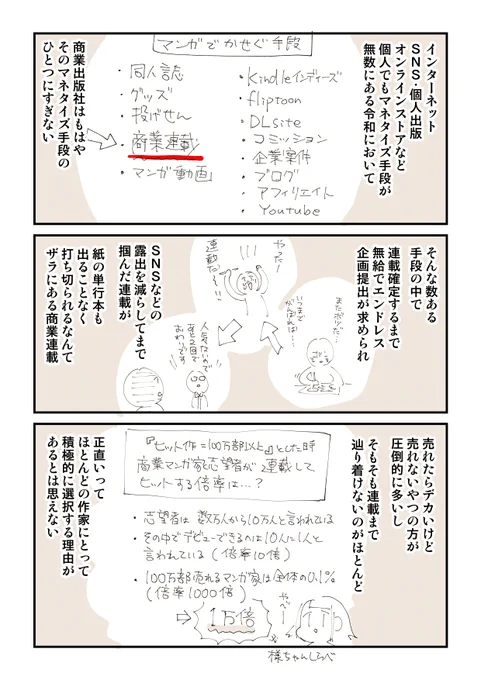 インターネット
SNS・個人出版
オンラインストアなど
個人でもマネタイズ手段が
無数にある令和において
マンガでかせぐ手段
・同人誌
・グッズ
・投げせん
・商業連載
・マンガ動画
・Kindleインディーズ
・fliptoon
・DLsite
・コミッション
・企業案件
・ブログ
・アフィリエイト
・Youtube
商業出版社はもはや
そのマネタイズ手段の
ひとつにすぎない
そんな数ある
手段の中で
連載確定するまで
無給でエンドレス
企画提出が求められ
またボツだ…
いつまで
がんばれば…
やったー!
連載だー!!
SNSなどの
露出を減らしてまで
掴んだ連載が
人気ないので
あと2回で
おわりです
紙の単行本も
出ることなく
打ち切られるなんて
ザラにある商業連載
売れたらデカいけど
売れないやつの方が
圧倒的に多いし
そもそも連載まで
辿り着けないのがほとんど
『ヒット作=100万部以上』とした時
商業マンガ家志望者が連載して
ヒットする倍率は…?
・志望者は数万人から10万人と言われている
・その中でデビューできるのは10人に1人と
言われている(倍率10倍)
・100万部売れるマンガ家は全体の0.1%
(倍率1000倍)
⇒1万倍
やべー
様ちゃんしらべ
正直いって
ほとんどの作家にとって
積極的に選択する理由が
あるとは思えない